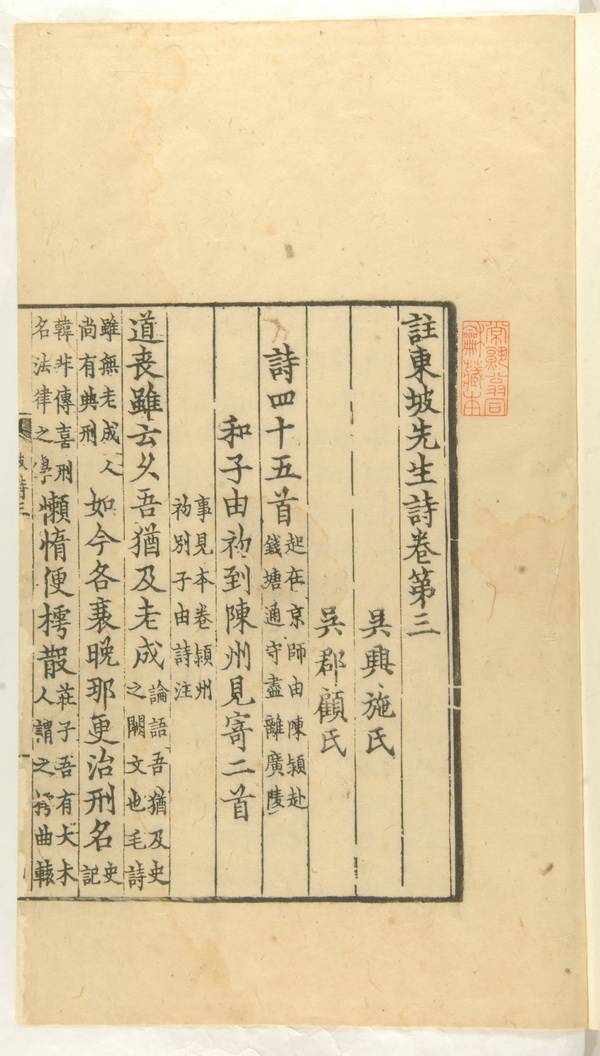 常熟翁同
龢藏本
註東坡先生詩卷第三
吳興施氏
吳郡顧氏
詩四十五首
起在京師由陳潁赴
錢塘通守盡離廣陵
和子由初到陳州見寄二首
事見本卷潁州
初別子由詩注
道喪雖云久吾猶及老成
論語吾猶及史
之闕文也毛詩
雖無老成人
尚有典刑
如今各衰晚那更治刑名
史
記
韓非傳喜刑
名法律之學
懶惰便樗散
莊子吾有大木
人謂之樗曲轅
詩三